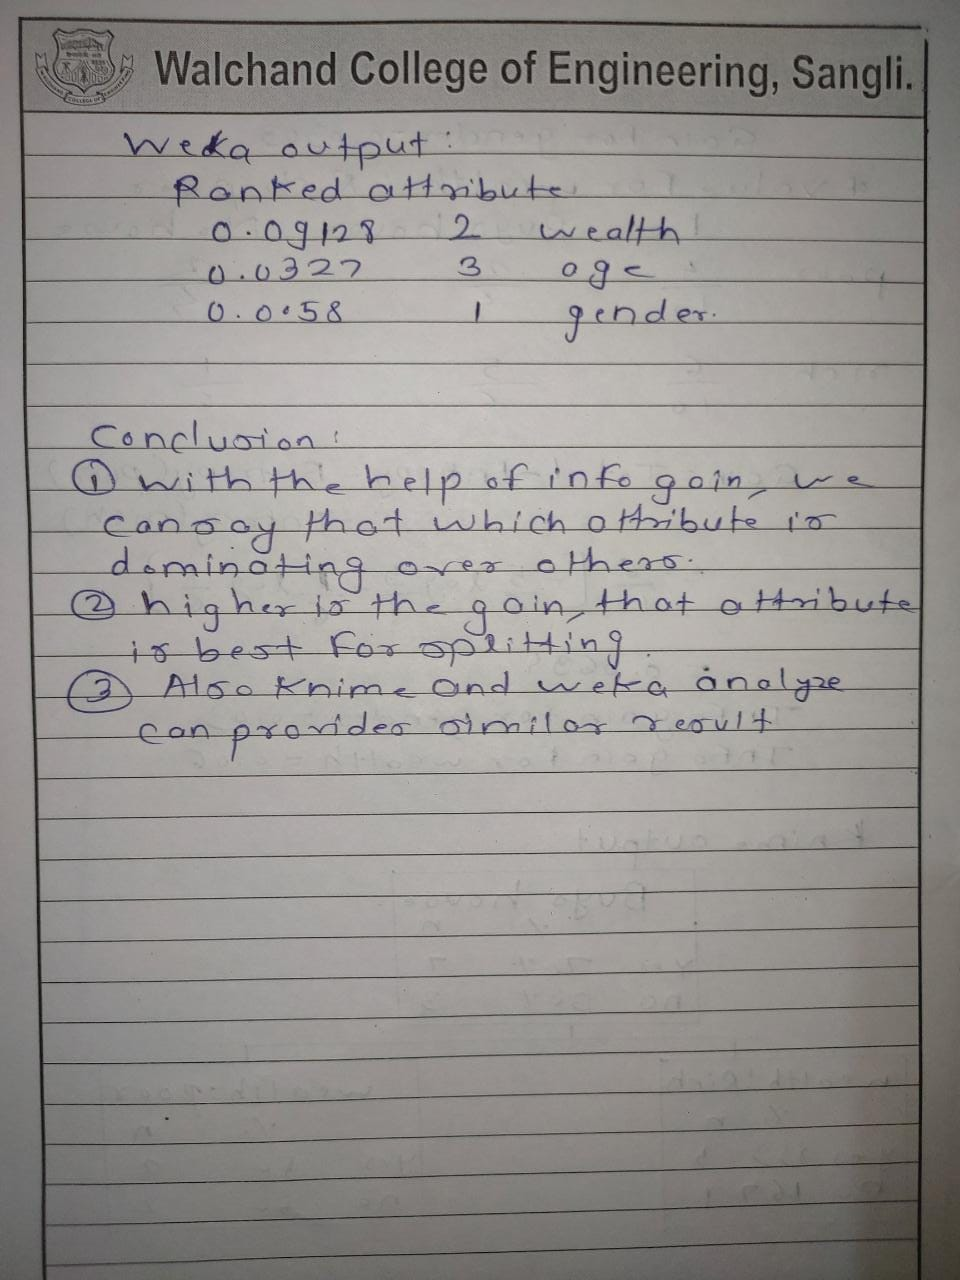 Walchand College of Engineering, Sangli.
Weka output:
Ranked attribute
0.09128 2 wealth
0.0327 3 age
0.0058 1 gender.
Conclusion:
① with the help of info gain, we
can say that which attribute is
dominating over others.
② higher is the gain, that attribute
is best for splitting.
③ Also Knime and weka analyze
can provides similar result